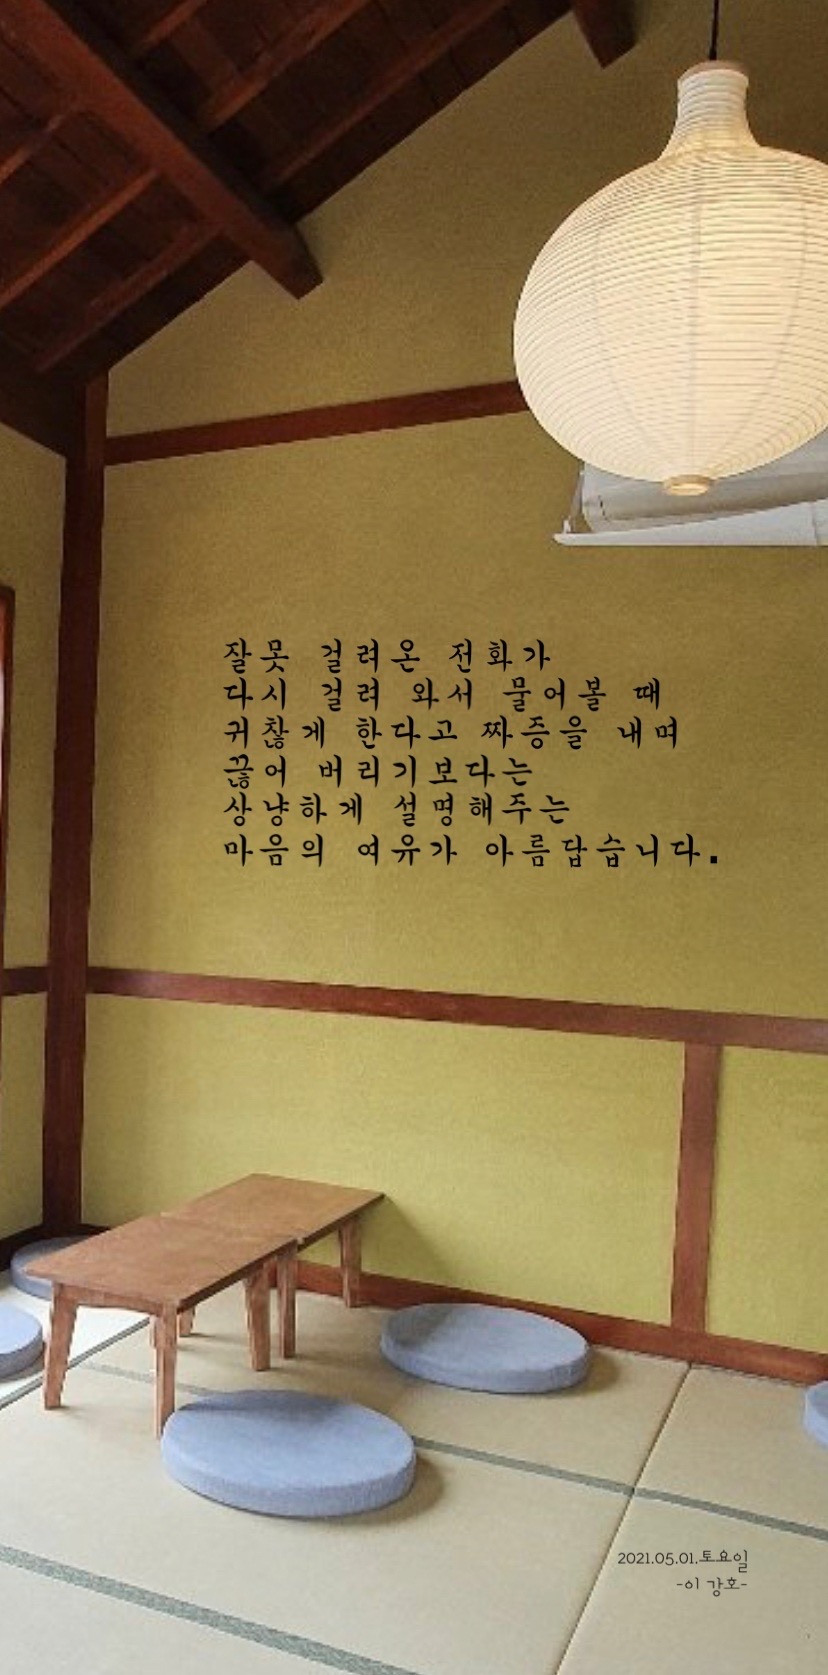 잘못 걸려온 전화가
다시 걸려 와서 물어볼 때
귀찮게 한다고 짜증을 내며
끊어 버리기보다는
상냥하게 설명해주는
마음의 여유가 아름답습니다.
2021.05.01.토요일
-이 강호-